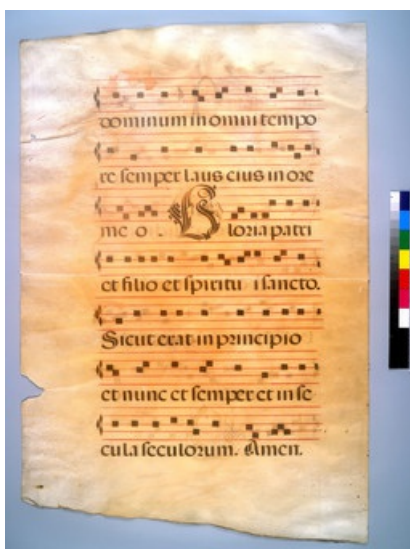 dominum in omni tempo
re semper laus eius in ore
me o . Gloria patri
et filio et spiritu i sancto.
Sicut erat in principio
et nunc et semper et in se
cula seculorum. Amen.